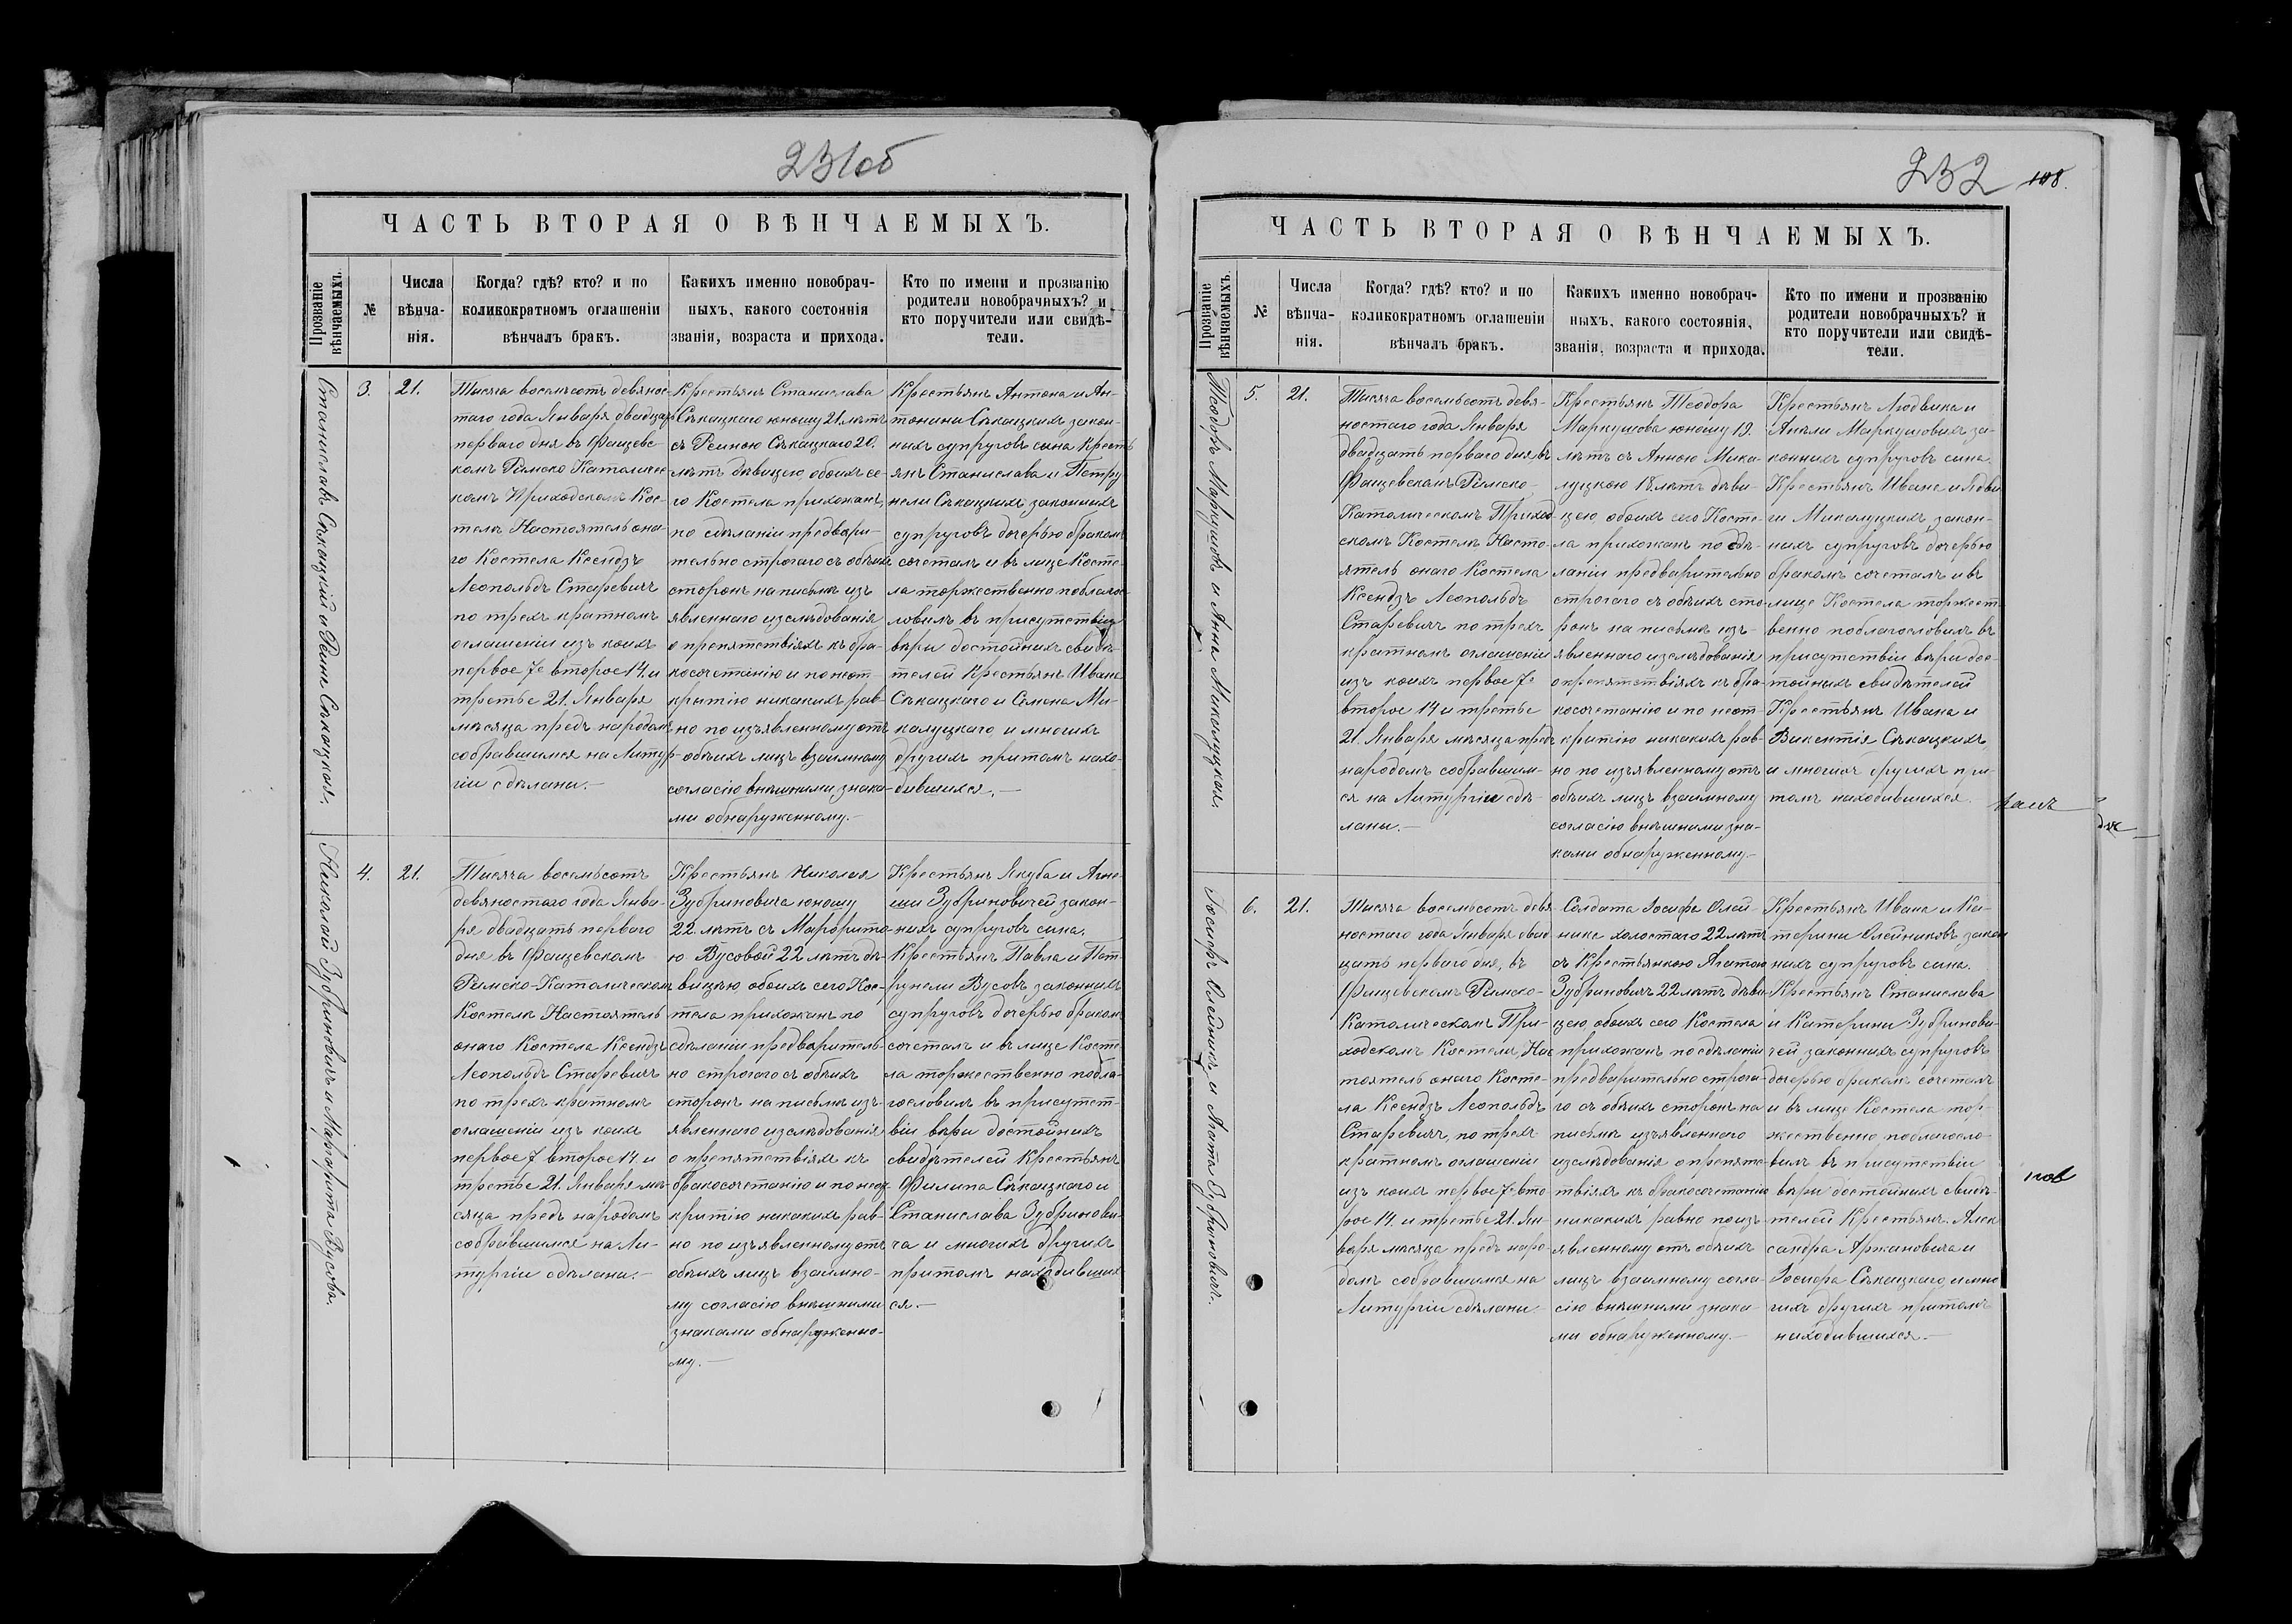 231об
ЧАСТЬ ВТОРАЯ О ВѢНЧАЕМЫХЪ.
Прозваніе вѣнчаемыхъ.
№
Числа вѣнча-
нія.
Когда? гдѣ? кто? и по
коликократномъ оглашеніи
вѣнчалъ бракъ.
Какихъ именно новобрач-
ныхъ, какого состоянія
званія, возраста и прихода.
Кто по имени и прозванію
родители новобрачныхъ? и
кто поручители или свидѣ-
тели.
3.
21.
Тысяча восемьсотъ девянос-
таго года Января двадцать
перваго дня въ Фащевс-
комъ Римско Католичес-
комъ Приходскомъ Кос-
телѣ Настоятель она-
го Костела Ксендзъ
Леопольдъ Старевичъ
по трехъ кратномъ
оглашеніи изъ коихъ
первое 7е второе 14. и
третье 21. Января
мѣсяца предъ народомъ
собравшимся на Литур-
гіи сдѣланы.—
Крестьянъ Станислава
Сѣкацкаго юношу 21. лѣтъ
съ Сѣкацкаго 20.
лѣтъ дѣвицею, обоихъ се-
го Костела прихожанъ,
по сдѣланіи предвари-
тельно строгаго съ обѣихъ
сторонъ на письмѣ изъ
явленнаго изслѣдованія
о препятствіяхъ къ бра-
косочетанію и по неот-
крытію никакихъ рав-
но по изъявленному отъ
обѣихъ лицъ взаимному
согласію внѣшними знака-
ми обнаруженному.—
Крестьянъ Антона и Ан-
тонины Сѣкацкихъ закон-
ныхъ супруговъ сына Кресть
янъ Станислава и Петру
нели Сѣкацкихъ, законныхъ
супруговъ дочерью бракомъ
сочеталъ и въ лицѣ Косте-
ла торжественно поблаго-
ловилъ въ присутствіи
вѣры достойныхъ свидѣ-
телей Крестьянъ Ивана
Сѣкацкаго и Семена Ми-
калуцкаго и многихъ
другихъ притомъ нахо-
дившихся.—
4.
21.
Тысяча восемьсотъ
девяностаго года Янва-
ря двадцать перваго
дня въ Фащевскомъ
Римско-Католическомъ
Костелѣ Настоятель
онаго Костела Ксендзъ
Леопольдъ Старевичъ
по трехъ кратномъ
оглашеніи изъ коихъ
первое 7 второе 14 и
третье 21. Января мѣ-
сяца предъ народомъ
собравшимся на Ли-
тургіи сдѣланы.—
Крестьянъ Николая
Зубриновича юношу
22. лѣтъ съ Марфрито-
ю Вусовой 22 лѣтъ дѣ-
вицею обоихъ сего Кос-
тела прихожанъ по
сдѣланіи предваритель-
но строгаго съ обѣихъ
сторонъ на письмѣ изъ-
явленнаго изслѣдованія
о препятствіяхъ къ
бракосочетанію и по неот-
крытію никакихъ рав-
но по изъявленному отъ
обѣихъ лицъ взаимно-
му согласію внѣшними
знаками обнаруженно-
му.—
Крестьянъ Якуба и Агне-
ши Зубриновичей закон-
ныхъ супруговъ сына.
Крестьянъ Павла и Пет-
рунели Вусовъ законныхъ
супруговъ дочерью бракомъ
сочеталъ и въ лицѣ Косте-
ла торжественно побла-
гословилъ въ присутст-
віи вѣры достойныхъ
свидѣтелей Крестьянъ
Филипа Сѣкацкаго и
Станислава Зубринови-
ча и многихъ другихъ
притомъ находивших
ся.—
232 108.
ЧАСТЬ ВТОРАЯ О ВѢНЧАЕМЫХЪ.
Прозваніе вѣнчаемыхъ.
№
Числа вѣнча-
нія.
Когда? гдѣ? кто? и по
коликократномъ оглашеніи
вѣнчалъ бракъ.
Какихъ именно новобрач-
ныхъ, какого состоянія,
званія, возраста и прихода.
Кто по имени и прозванію
родители новобрачныхъ? и
кто поручители или свидѣ-
тели.
Теодоръ Маркушовъ и Анна Микалуцкая.
5.
21.
Тысяча восемьсотъ девя-
ностаго года Января
двадцать перваго дня, въ
Фащевскомъ Римско-
Католическомъ Приход
скомъ Костелѣ Насто-
ятель онаго Костела
Ксендзъ Леопольдъ
Старевичъ по трехъ
кратномъ оглашеніи
изъ коихъ первое 7е
второе 14 и третье
21. Января мѣсяца предъ
народомъ собравшим-
ся на Литургіи сдѣ-
ланы.—
Крестьянъ Теодора
Маркушова юношу 19.
лѣтъ съ Анною Мика-
луцкою 18. лѣтъ дѣви-
цею обоихъ сего Косте-
ла прихожанъ по сдѣ-
ланіи предварительно
строгаго съ обѣихъ сто-
ронъ на письмѣ изъ-
явленнаго изслѣдованія
о препятствіяхъ къ бра-
косочетанію и по неот-
крытію никакихъ рав-
но по изъявленному отъ
обѣихъ лицъ взаимному
согласію внѣшними зна-
ками обнаруженному.—
Крестьянъ Людвика и
Анели Маркушовыхъ за-
конныхъ супруговъ сына.
Крестьянъ Ивана и Ядви
ги Микалуцкихъ закон-
ныхъ супруговъ дочерью
бракомъ сочеталъ и въ
лицѣ Костела торжест-
венно поблагословилъ въ
присутствіи вѣры дос-
тойныхъ свидѣтелей
Крестьянъ Ивана и
Викентія Сѣкацкихъ,
и многихъ другихъ при-
томъ находившихся.
Іосифъ Олейникъ и Агата Зубриновичъ.
6.
21.
Тысяча восемьсотъ девя
ностаго года Января двад
цать перваго дня, въ
Фащевскомъ Римско-
Католическомъ При-
ходскомъ Костелѣ, Нас
тоятель онаго Косте-
ла Ксендзъ Леопольдъ
Старевичъ, по трехъ
кратномъ оглашеніи
изъ коихъ первое 7е вто
рое 14. и третье 21. Ян-
варя мѣсяца предъ наро-
домъ собравшимся на
Литургіи сдѣланы
Солдата Іосифа Олей-
ника холостаго 22 лѣтъ
съ Крестьянкою Агатою
Зубриновичъ 22 лѣтъ дѣви-
цею, обоихъ сего Костела
прихожанъ по сдѣланіи
предварительно строга-
го съ обѣихъ сторонъ на
письмѣ изъявленнаго
изслѣдованія о препятс-
твіяхъ къ бракосочетанію
никакихъ равно по изъ-
явленному отъ обѣихъ
лицъ взаимному согла-
сію внѣшними знака-
ми обнаруженному.—
Крестьянъ Ивана и Ка-
терины Олейниковъ закон
ныхъ супруговъ сына.
Крестьянъ Станислава
и Катерины Зубринови-
чей законныхъ супруговъ
дочерью бракомъ сочеталъ
и въ лицѣ Костела тор-
жественно, поблагосло-
вилъ въ присутствіи
вѣры достойныхъ свидѣ-
телей Крестьянъ. Алек
сандра Аржановича и
Іосифа Сѣкацкаго, и мно
гихъ другихъ притомъ
находившихся.—